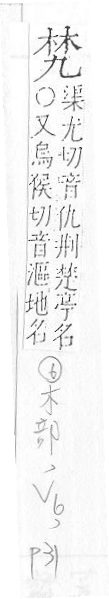 渠尤切音仇荆楚亭名
○又烏猴切音漚地名
⑥木部、V6、P31